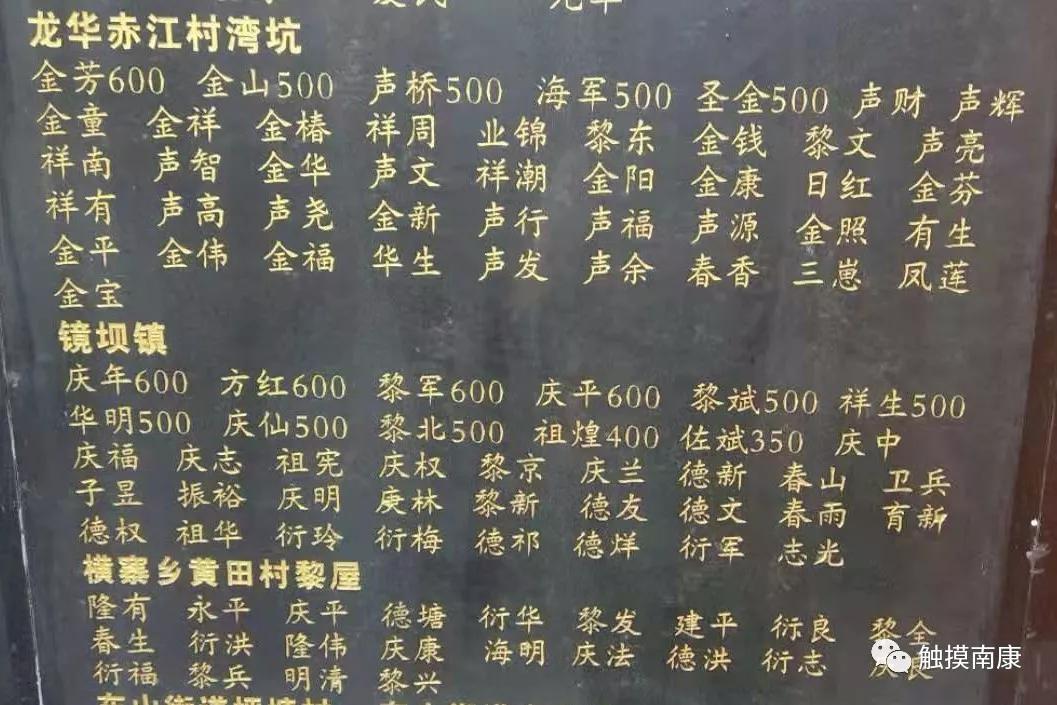 龙华赤江村湾坑
金芳600 金山500 声桥500 海军500 圣金500 声财 声辉
金童 金祥 金椿 祥周 业锦 黎东 金钱 黎文 声亮
祥南 声智 金华 声文 祥潮 金阳 金康 日红 金芬
祥有 声高 声尧 金新 声行 声福 声源 金照 有生
金平 金伟 金福 华生 声发 声余 春香 三崽 凤莲
金宝
镜坝镇
庆年600 方红600 黎军600 庆平600 黎斌500 祥生500
华明500 庆仙500 黎北500 祖煌400 佐斌350 庆中
庆福 庆志 祖宪 庆权 黎京 庆兰 德新 春山 卫兵
子昱 振裕 庆明 庚林 黎新 德友 德文 春雨 育新
德权 祖华 衍玲 衍梅 德祁 德烊 衍军 志光
横寨乡黄田村黎屋
隆有 永平 庆平 德塘 衍华 黎发 建平 衍良 黎全
春生 衍洪 隆伟 庆康 海明 庆法 德洪 衍志
衍福 黎兵 明清 黎兴
触摸南康